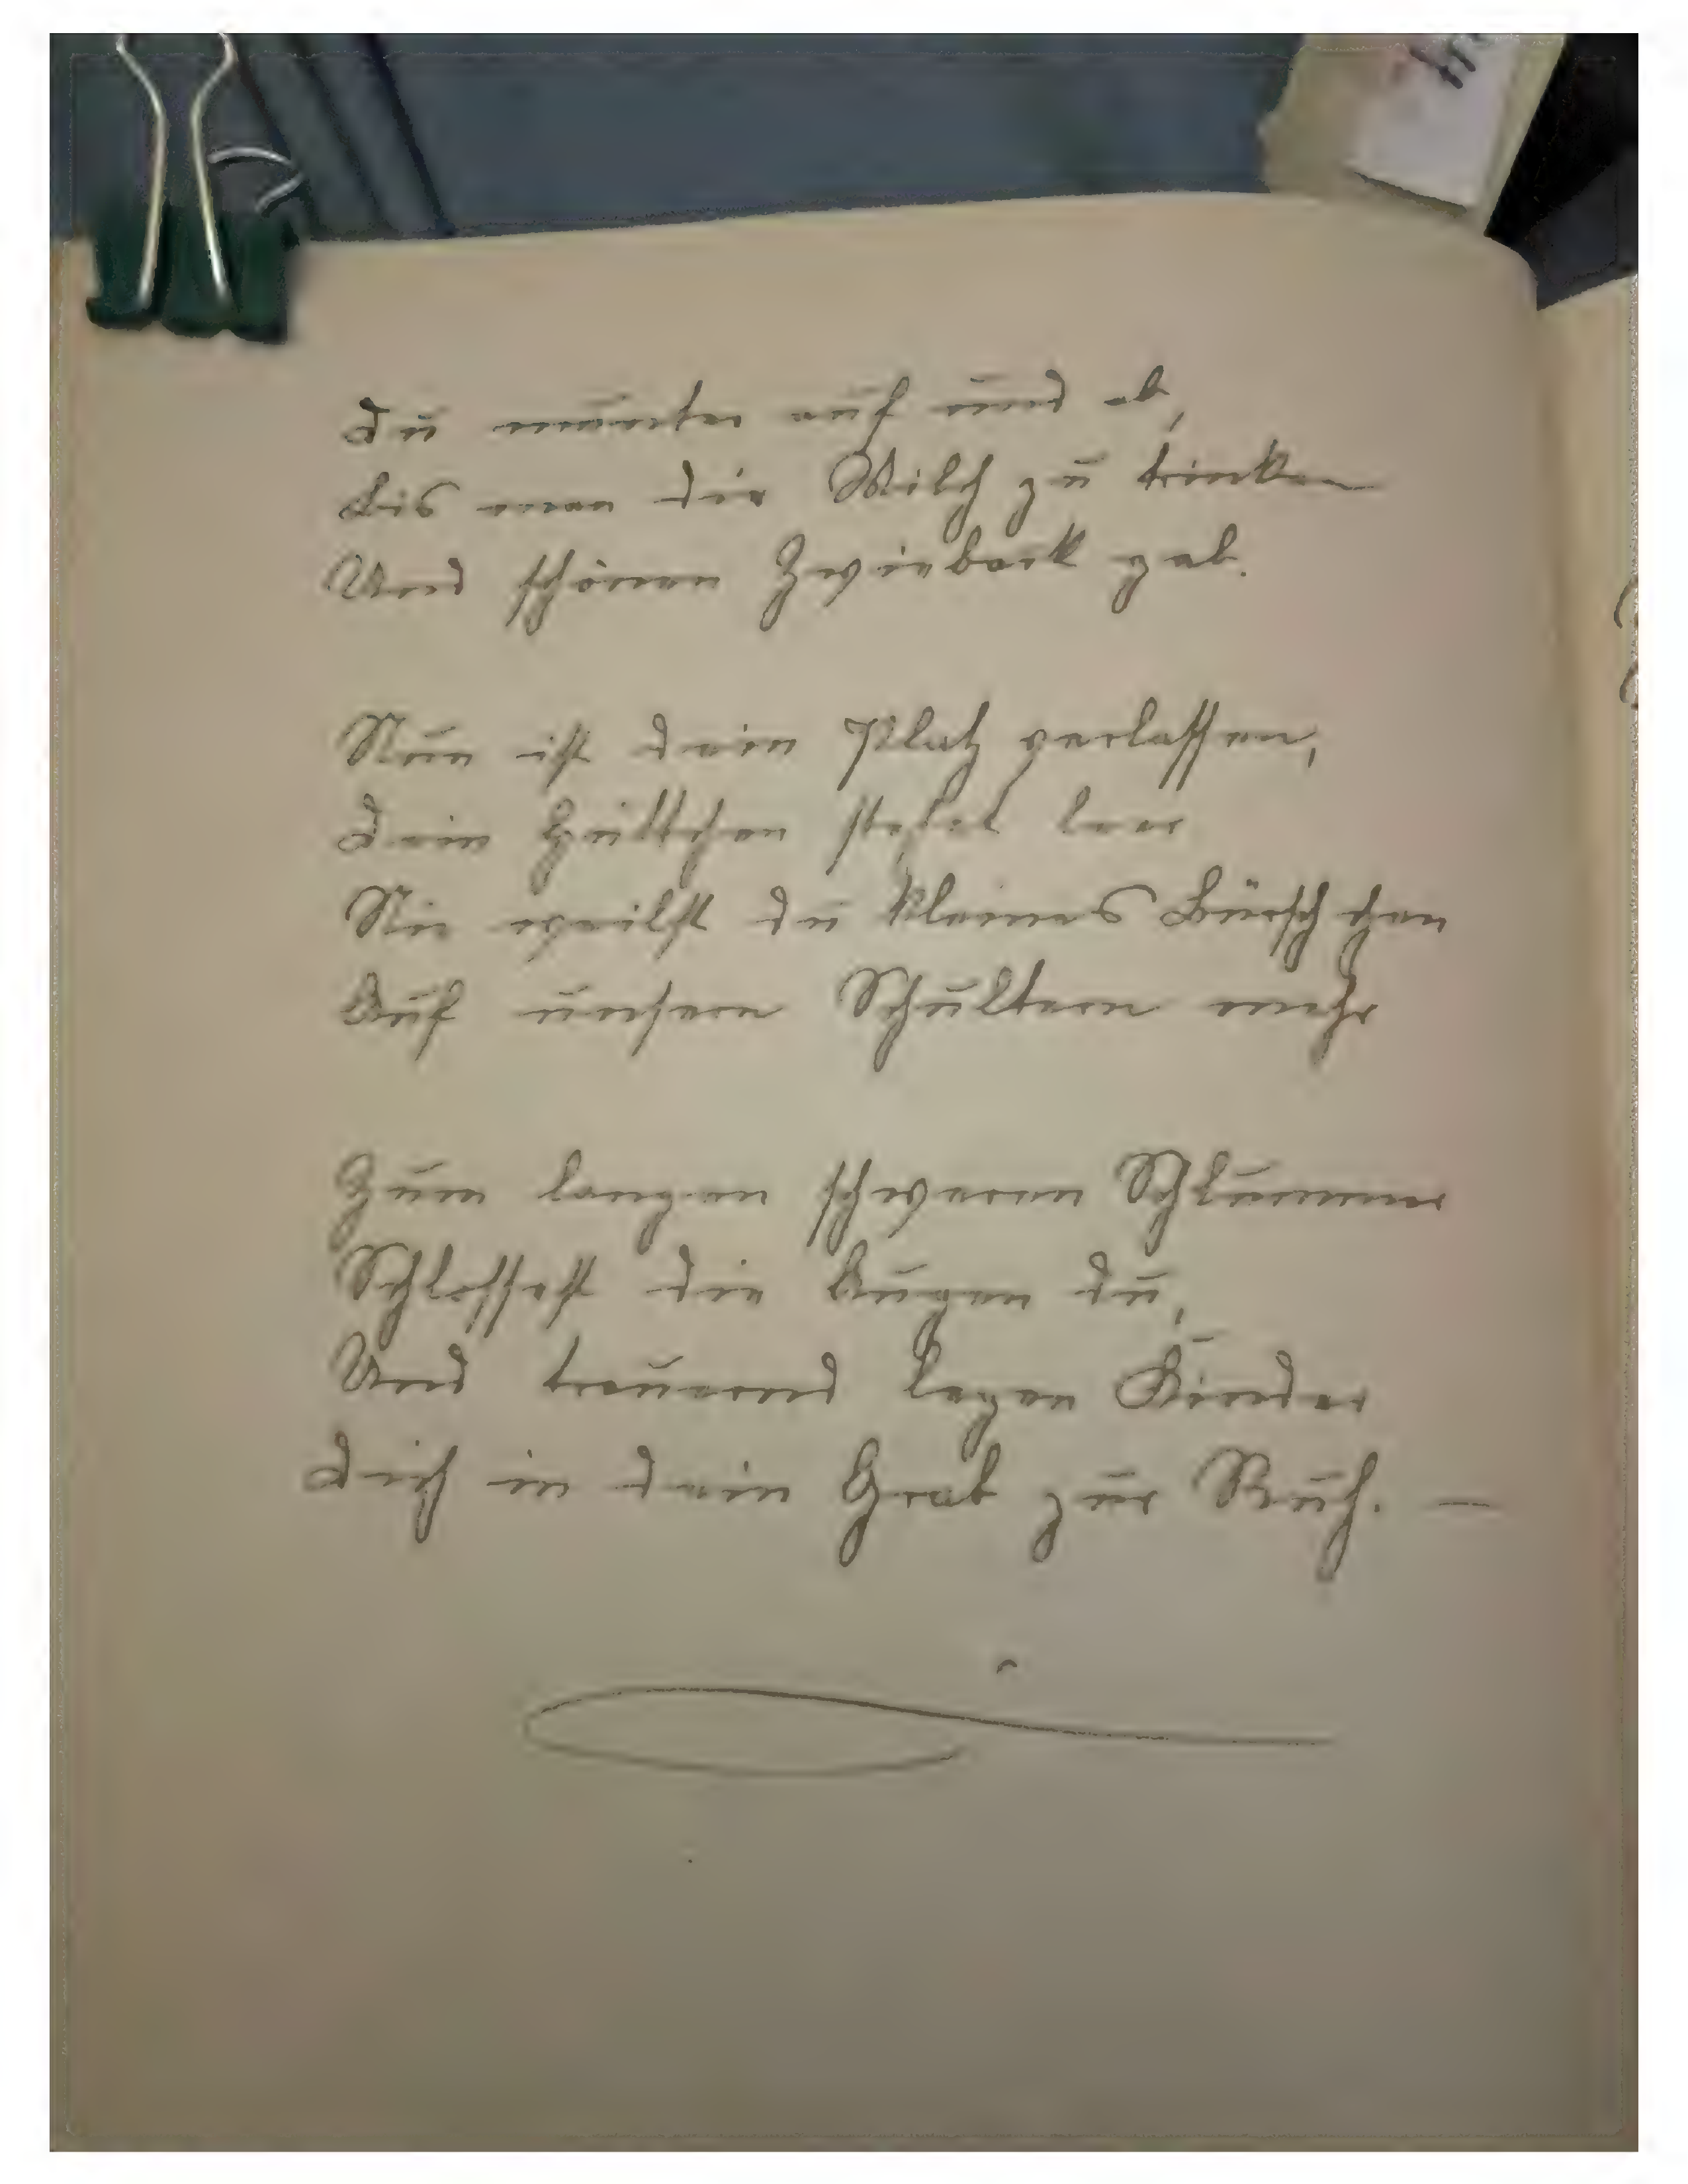 Du munter auf und ab,
Bis man dir Milch zu trinken
Und schönen Zwieback gab.
Nun ist dein Platz verlassen,
Dein Hüttchen stehet leer
Nie weilst du kleines Bürschchen
Auf unsern Schultern mehr
Zum langen schweren Schlummer
Schlossest die Augen du,
Und trauernd legen Kinder
Dich in dein Grab zur Ruh. —